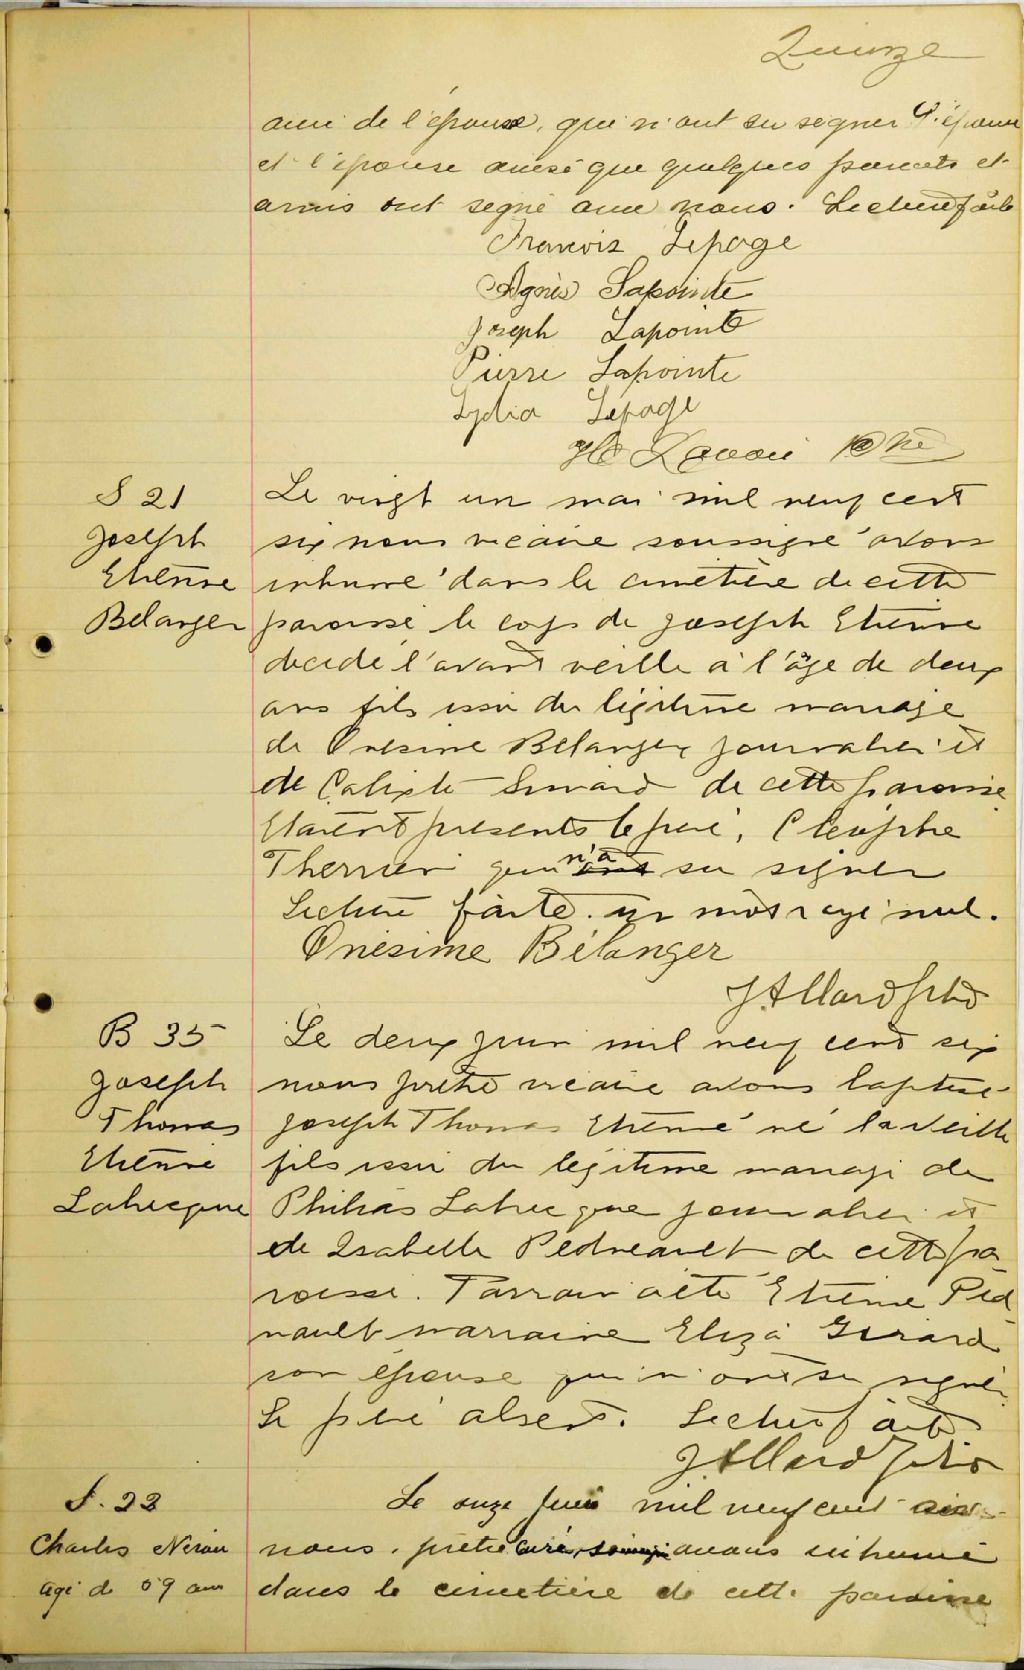 Quinze
ami de l'épouse, qui n'ont su signer. L'époux
et l'épouse ainsi que quelques parents et
amis ont signé avec nous. Lecture faite
Francois Lepage
Agnès Lapointe
Joseph Lapointe
Pierre Lapointe
Lydia Lepage
Lavoie
S 21
Joseph
Etienne
Bélanger
Le vingt un mai mil neuf cent
six nous vicaire soussigné avons
inhumé dans le cimetière de cette
paroisse le corps de Joseph Etienne
décédé l'avant veille à l'âge de deux
ans fils issu du légitime mariage
de Onésime Bélanger, journalier et
de Calixte Simard de cette paroisse
Etaient présents le père, Cléophe
Therrien qui n'a su signer
Lecture faite. un mot rayé nul.
Onésime Bélanger
J. Allard ptre
B 35
Joseph
Thomas
Etienne
Labrecque
Le deux juin mil neuf cent six
nous prêtre vicaire avons baptisé
Joseph Thomas Etienne né la veille
fils issu du légitime mariage de
Philias Labrecque journalier et
de Isabelle Pedneault de cette pa-
roisse. Parrain a été Etienne Ped-
nault marraine Eliza Girard
son épouse qui n'ont su signer.
Le père absent. Lecture faite
J. Allard ptre
S. 22
Charles Néron
agé de 59 ans
Le onze juin mil neuf cent six
nous, prêtre curé, soussigné avons inhumé
dans le cimetière de cette paroisse